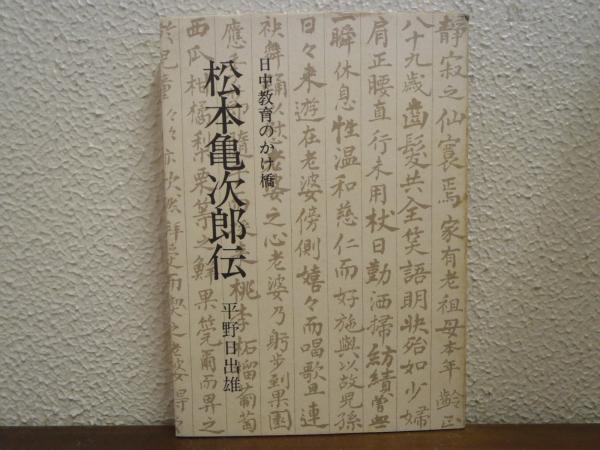 靜寂之仙寰焉家有老祖母本年齢正
八十九歳齒髪共全笑語明快殆如少婦
肩正腰直行未用杖日勤洒掃紡績曽無
一瞬休息性温和慈仁而好施與以故児孫
日々来遊在老婆傍側嬉々而唱歌旦連
之心老婆乃躬歩到果園
桃李柘榴葡萄
西瓜柑橘梨栗等之鮮果莞爾而畀之
日中教育のかけ橋
松本亀次郎伝
平野日出雄